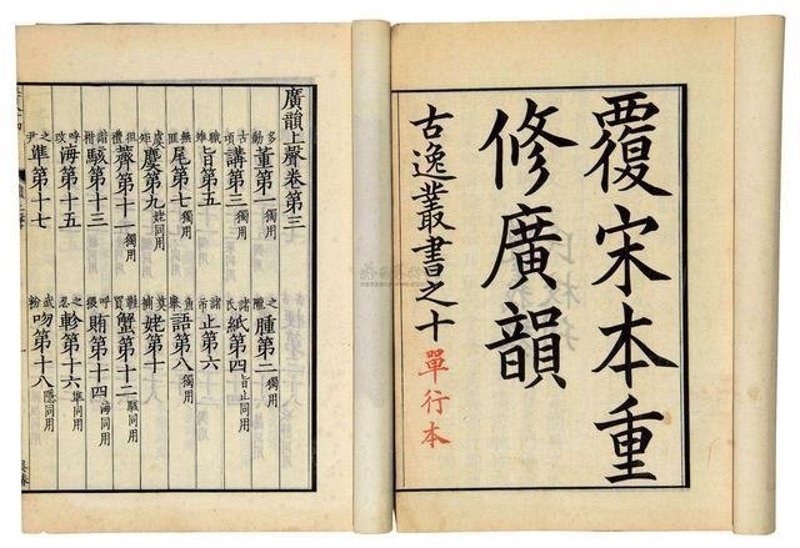 覆宋本重
修廣韻
古逸叢書之十 單行本
廣韻上聲卷第三
多動董第一獨用 之隴腫第二獨用
古項講第三獨用 諸氏紙第四旨止同用
職雉旨第五 諸市止第六
無匪尾第七獨用 魚舉語第八獨用
虞矩麌第九姥同用 莫補姥第十
徂禮薺第十一獨用 鞵買蟹第十二駭同用
諧楷駭第十三 呼猥賄第十四海同用
呼改海第十五 之忍軫第十六準同用
之尹準第十七 武粉吻第十八隱同用